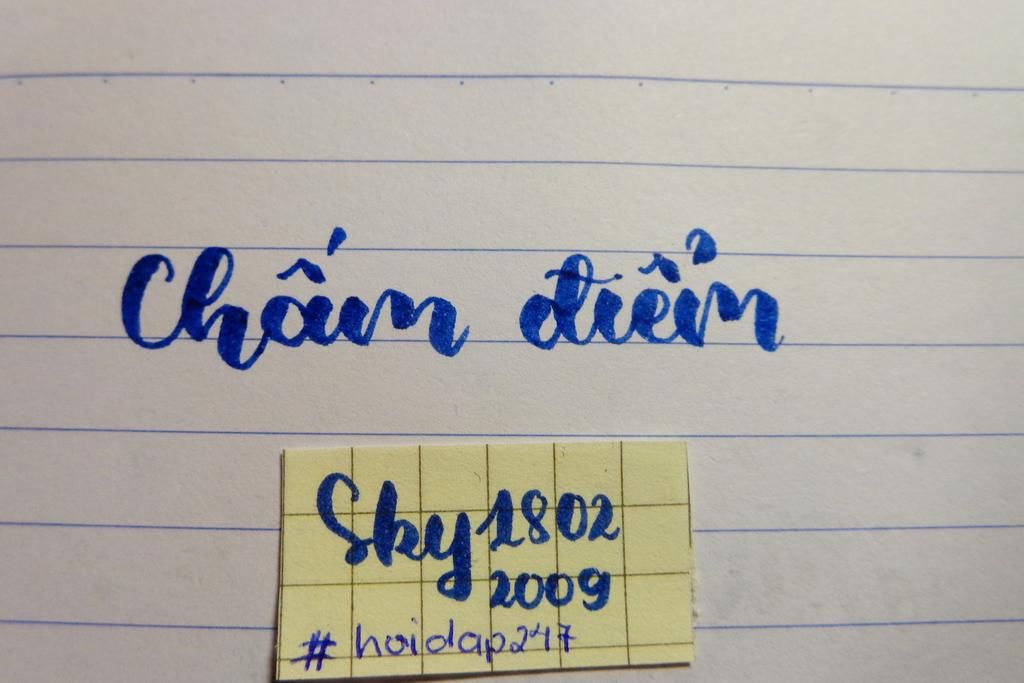 Chấm điểm
Sky 1802
2009
# hoidap247